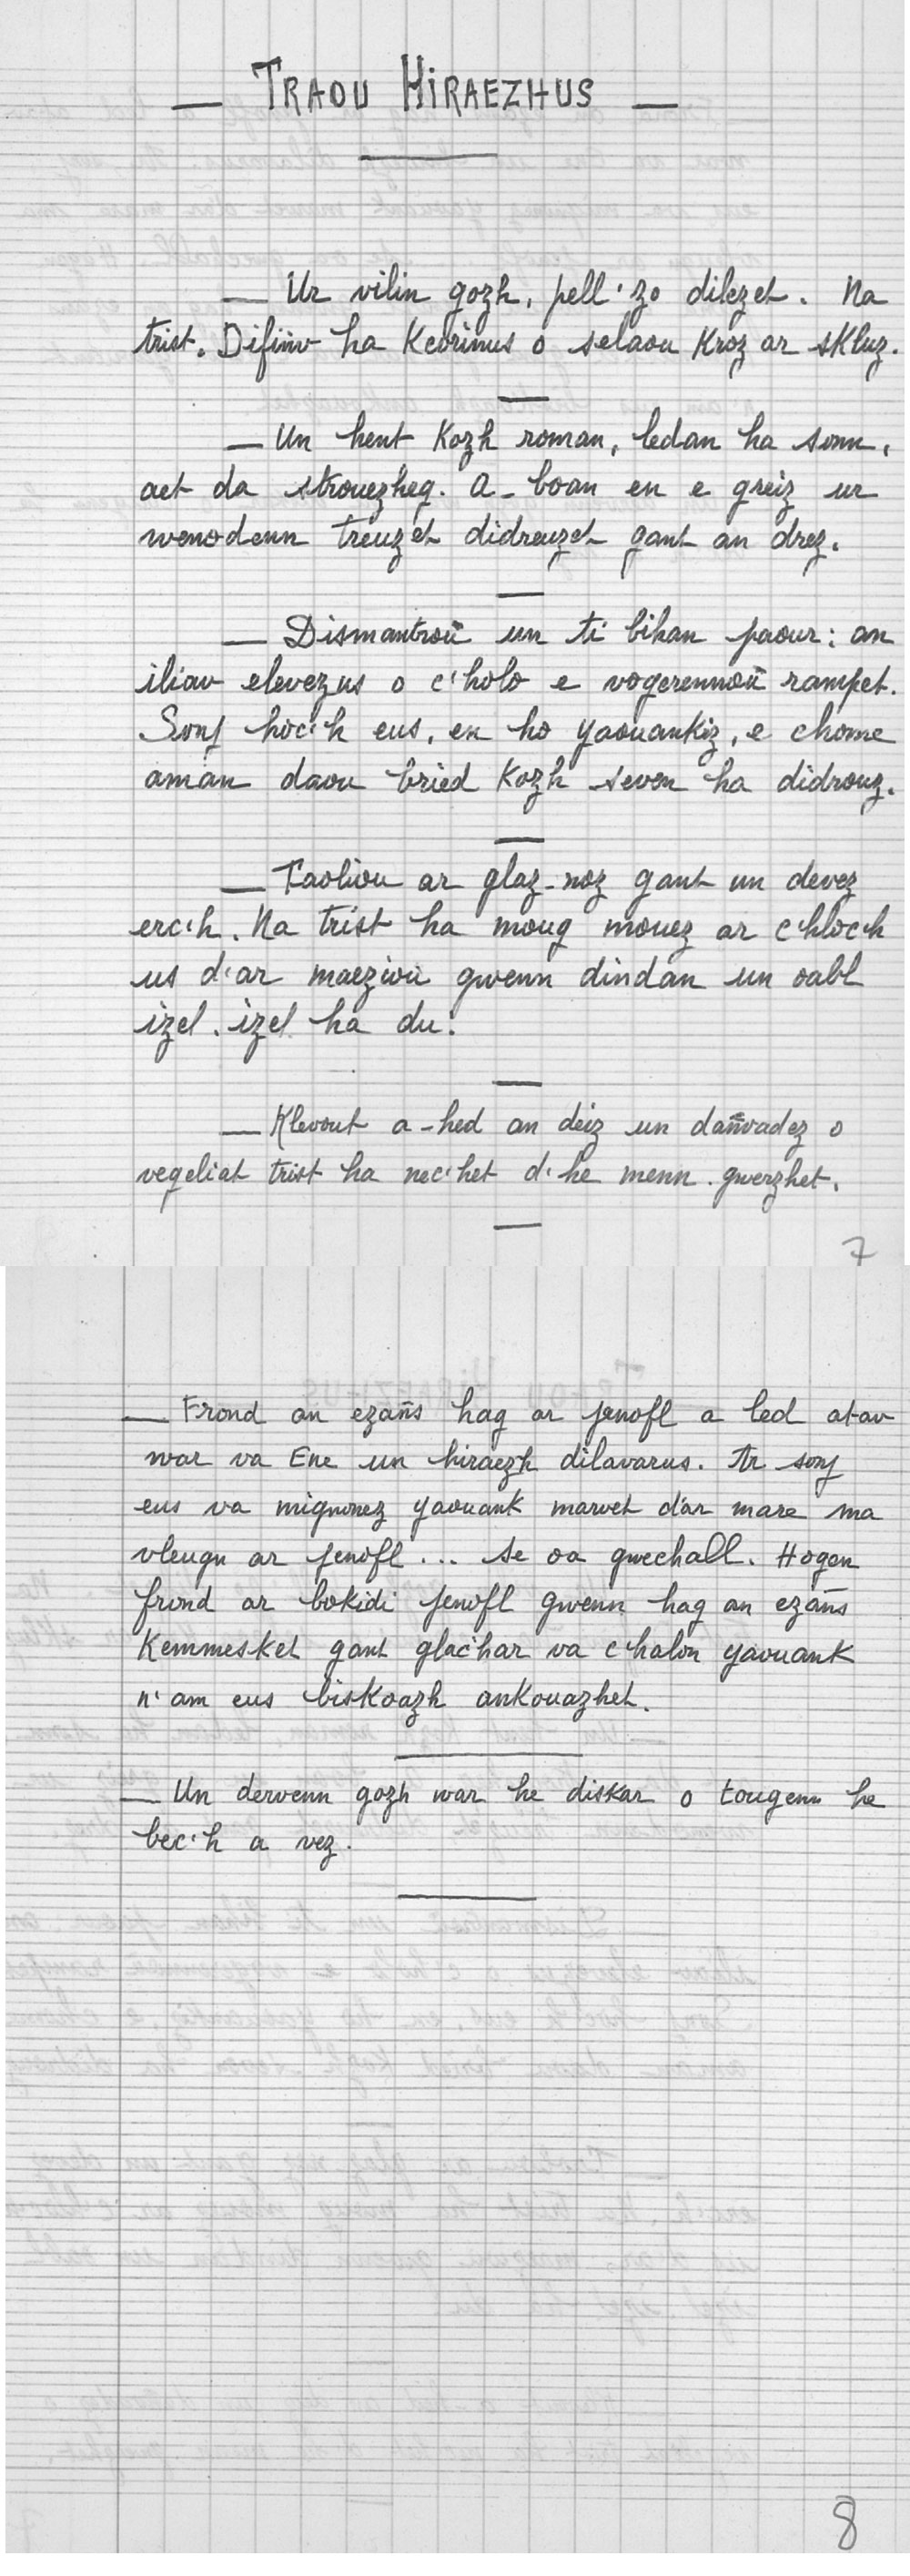 — TRAOU HIRAEZHUS —
— Ur vilin gozh, pell'zo dilezet. Na
trist. Difiñv ha Kevrinus o selaou Kroz ar skluz.
— Un hent Kozh roman, ledan ha sonn,
aet da strouezheg. A-boan en e greiz ur
wenodenn treuzet didreuzet gant an drez.
— Dismantroù un ti bihan paour: an
iliav elevezus o c'holo e vogerennoù rampet.
Sonj hoc'h eus, en ho yaouankiz, e chome
aman daou bried Kozh seven ha didrouz.
— Taoliou ar glaz-noz gant un devez
erc'h. Na trist ha moug mouez ar c'hloc'h
us d'ar maezioù gwenn dindan un oabl
izel, izel ha du!
— Klevout a-hed an deiz un dañvadez o
vegeliat trist ha nec'het d'he menn gwerzhet.
7
— Frond an ezañs hag ar jenofl a led atav
war va Ene un hiraezh dilavarus. Ar sonj
eus va mignonez yaouank marvet d'ar mare ma
vleugn ar jenofl ... Se oa gwechall. Hogen
frond ar bokidi jenofl gwenn hag an ezañs
Kemmesket gant glac'har va c'halon yaouank
n'am eus biskoazh ankouazhet.
— Un dervenn gozh war he diskar o tougenn he
bec'h a vez.
8